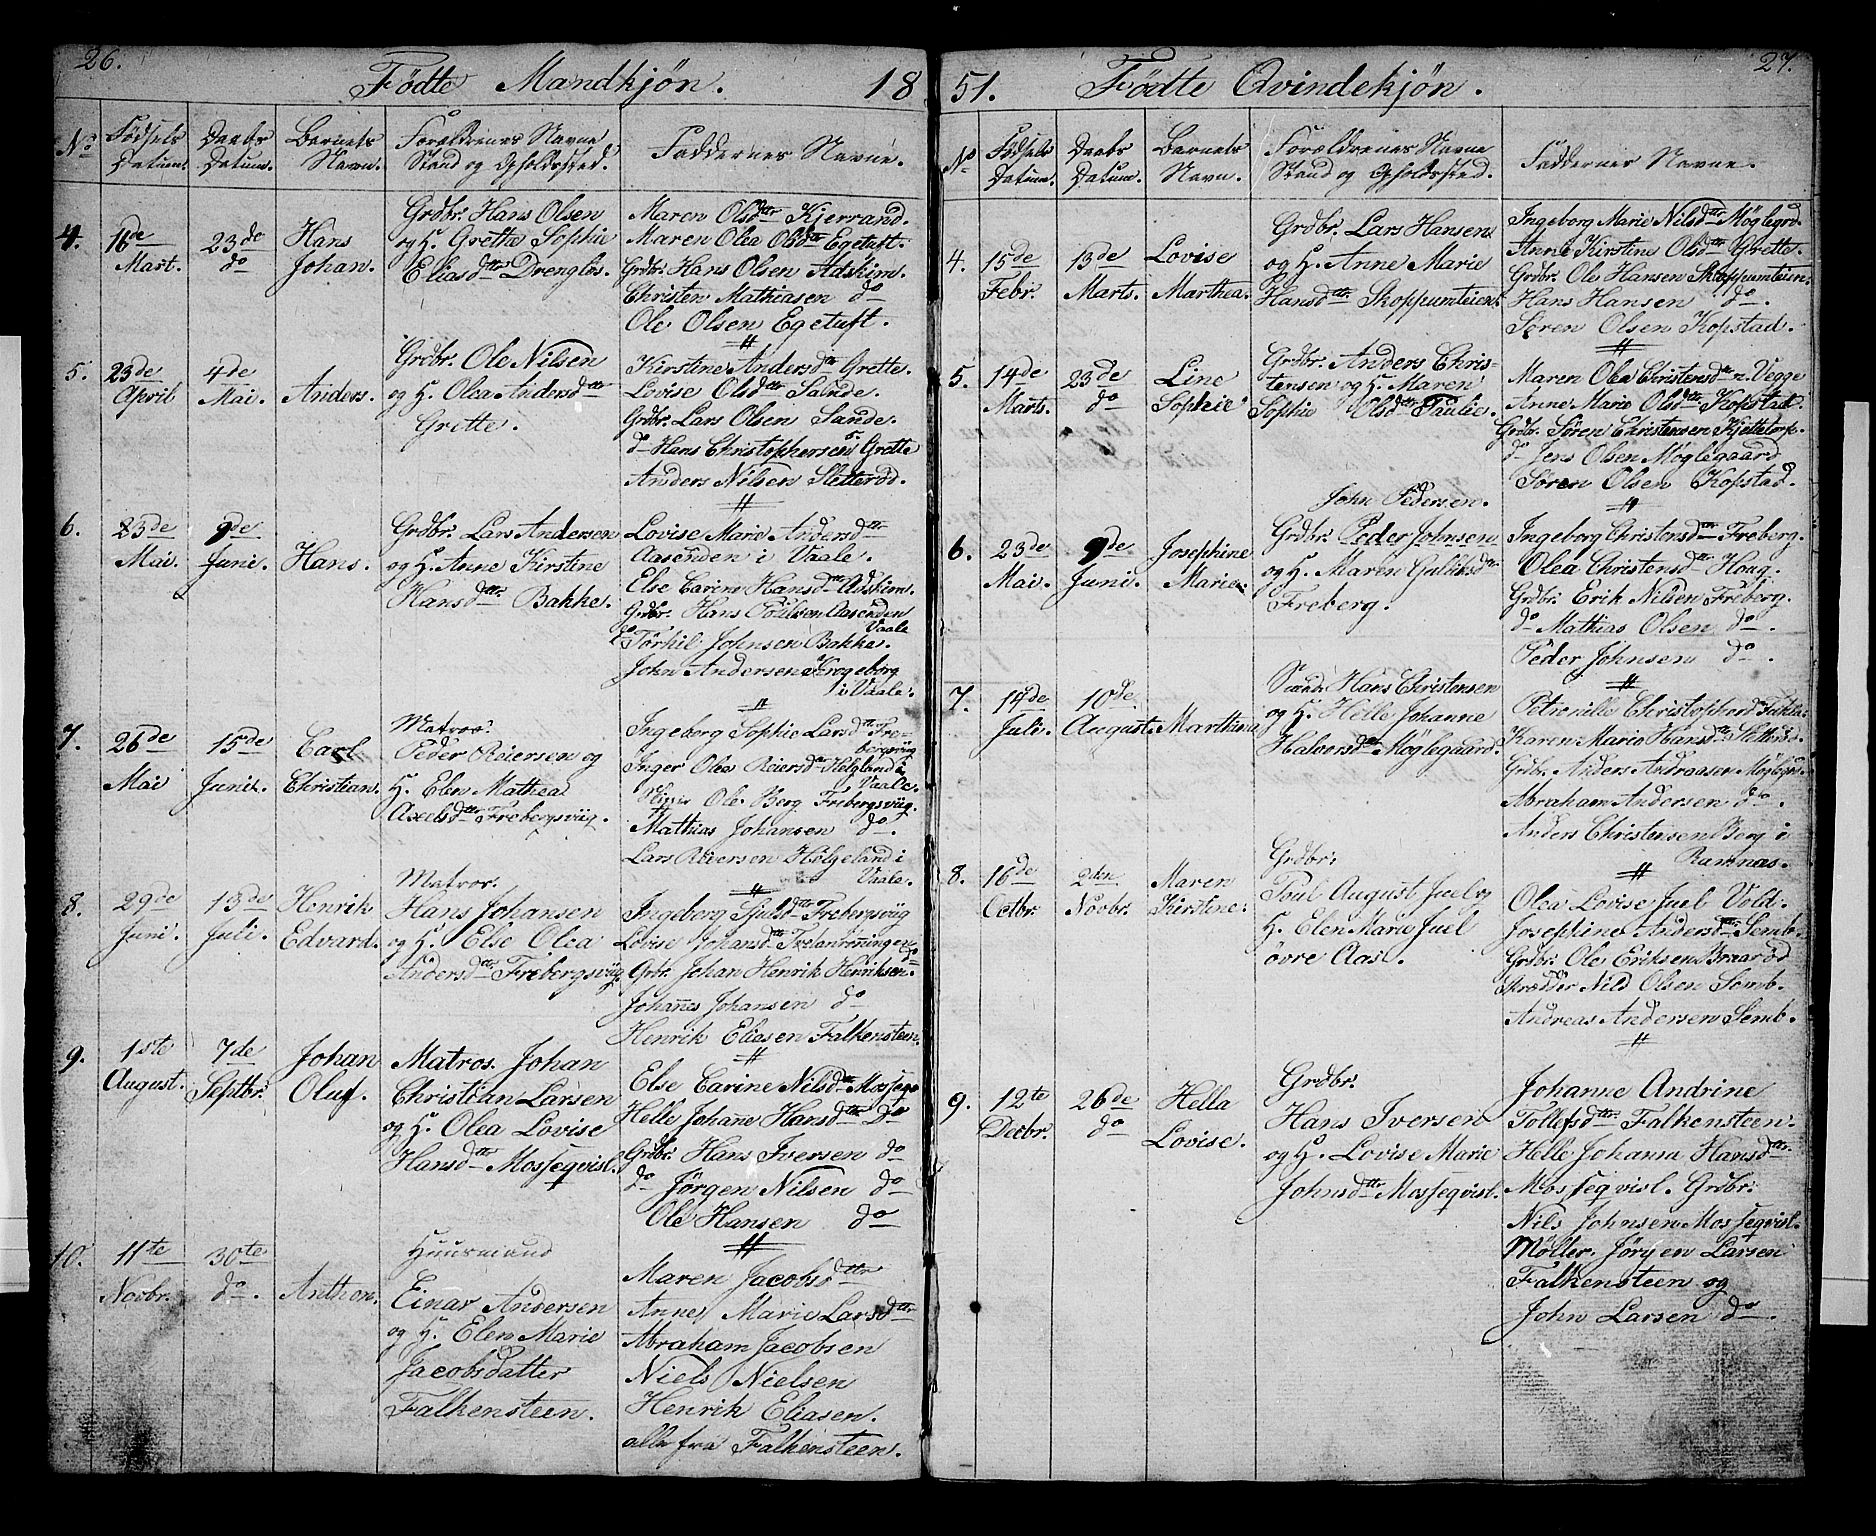 26.
Fødte Mandkjøn. 18
No
Fødsels Datum.
Daabs Datum.
Barnets Navn.
Forældrenes Navne
Stand og Opholdssted.
Faddernes Navne.
4.
16de
Mart.
23de
do
Hans
Johan.
Grdbr. Hans Olsen
og H. Grethe Sophie
Eliasdtr Drengløs.
Maren Olsdtr Kjerrand.
Maren Olea Olsdtr Egetuft.
Grdbr. Hans Olsen Adskim.
Christen Mathiasen do
Ole Olsen Egetuft.
5.
23de
April
4de
Mai.
Anders.
Grdbr. Ole Nilsen
og H. Olea Andersdtr
Grette.
Kirstine Andersdtr Grette.
Lovise Olsdtr Sande.
Grdbr. Lars Olsen Sande.
do Hans Christophersen Grette
Anders Nilsen Sletterød.
6.
23de
Mai.
9de
Juni.
Hans.
Grdbr. Lars Andersen
og H. Anne Kirstine
Hansdtr Bakke.
Lovise Marie Andersdtr
Aasenden i Vaale.
Else Carine Hansdtr Adskim.
Grdbr. Hans Poulsen Aasenden
Vaale
do Torkil Johnsen Bakke.
John Andersen Krogeborg
i Vaale.
7.
26de
Mai
15de
Juni.
Carl
Christian.
Matros.
Peder Reiersen og
H. Elen Mathea
Axelsdtr Frebergsviig.
Ingeborg Sophie Larsdtr Fre-
bergsviig
Inger Olea Reiersdtr Helgland i
Vaale.
Ole Berg Frebergsviig.
Mathias Johansen do.
Lars Reiersen Helgeland i
Vaale.
8.
29de
Juni.
13de
Juli.
Henrik
Edvard.
Matros.
Hans Johansen
og H. Else Olea
Andersdtr Frebergsviig
Ingeborg Frebergsviig
Lovise Johansdtr
Grbr. Johan Henrik Henriksen do
Johannes Johansen do
Henrik Eliasen Falkensteen.
9.
1ste
August.
7de
Septbr.
Johan
Oluf.
Matros. Johan
Christian Larsen
og H. Olea Lovise
Hansdtr Mosseqvisl.
Else Carine Nilsdtr Mosseqv
Helle Johanne Hansdtr Do
Grdbr. Hans Iversen do
do Jørgen Nilsen do
Ole Hansen do
10.
11te
Novbr.
30te
do.
Anthon.
Huusmand
Einar Andersen
og H. Elen Marie
Jacobsdatter
Falkensteen.
Maren Jacobsdtr
Anne Marie Larsdtr
Abraham Jacobsen
Niels Nielsen
Henrik Eliasen.
alle fra Falkensteen.
27.
51. Fødte Qvindekjøn.
No
Fødsels Datum.
Daabs Datum.
Barnets Navn.
Forældrenes Navne
Stand og Opholdssted.
Faddernes Navne.
4.
15de
Febr.
13de
Marts.
Lovise
Marthea.
Grdbr. Lars Hansen
og H. Anne Marie
Hansdtr Skoppumteien.
Ingeborg Marie Nilsdtr Møglegrd.
Anne Kirstine Olsdtr Grette.
Grdbr. Ole Hansen Skoppumteien.
Hans Hansen do.
Søren Olsen Kopstad.
5.
14de
Marts.
23de
do
Line
Sophie.
Grdbr. Anders Chris-
tensen og H. Maren
Sophie Olsdtr Paulie.
Maren Olea Christensdtr n. Vegge
Anne Marie Olsdtr Kopstad.
Grdbr. Søren Christensen Kjettetorp.
do Jens Olsen Møglegaard
Søren Olsen Kopstad.
6.
23de
Mai.
9de
Juni.
Josephine
Marie.
John Pedersen.
Grdbr. Peder Johnsen
og H. Maren Guliksdtr
Freberg.
Ingeborg Christensdtr Freberg.
Olea Christensdtr Houg.
Grdbr. Erik Nilsen Freberg.
do Mathias Olsen do.
Peder Johnsen do.
7.
14de
Juli.
10de
August.
Marthina
Hans Christensen
og H. Helle Johanne
Halvorsdtr Møglegaard.
Petronille
Karen Marie Hansdtr Sletterød.
Grdbr. Anders Andreasen Møglegrd.
Abraham Andersen do.
Anders Christensen Berg i
Ramnæs.
8.
16de
Octbr.
2den
Novbr.
Maren
Kirstine.
Grdbr.
Poul August Juel og
H. Elen Marie Juel
øvre Aas.
Olea Lovise Juel Vold.
Josephine Andersdtr Semb.
Grdbr. Ole Eriksen Braarød
Skrædder Nils Olsen Semb.
Andreas Andersen Semb.
9.
12te
Decbr.
26de
do
Hella
Lovise.
Grdbr.
Hans Iversen
og H. Lovise Marie
Johnsdtr Mosseqvisl.
Johanne Andrine
Tollefsdtr Falkensteen.
Helle Johanna Hansdtr.
Mosseqvisl. Grdbr.
Nils Johnsen Mosseqvisl.
Møller. Jørgen Larsen
Falkensteen og
John Larsen do.